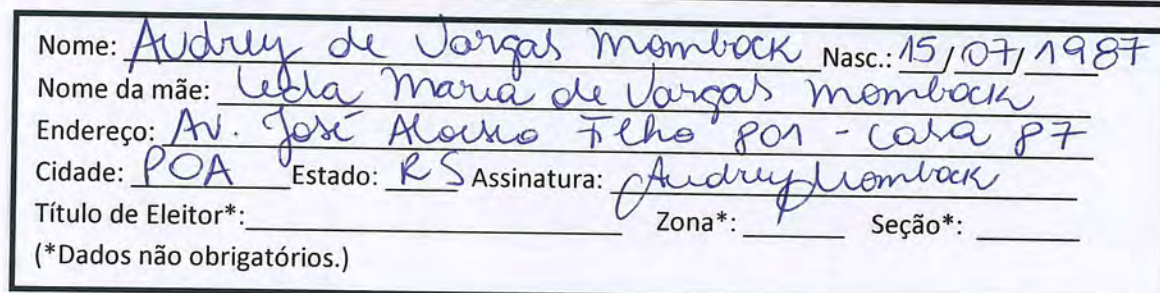 Nome: Audrey de Vargas Mombock Nasc.: 15/07/1987
Nome da mãe: Leda Maria de Vargas Mombock
Endereço: Av. José Aloisio Filho 801 - casa 87
Cidade: POA Estado: RS Assinatura: Audrey Mombock
Título de Eleitor*: Zona*: Seção*:
(*Dados não obrigatórios.)